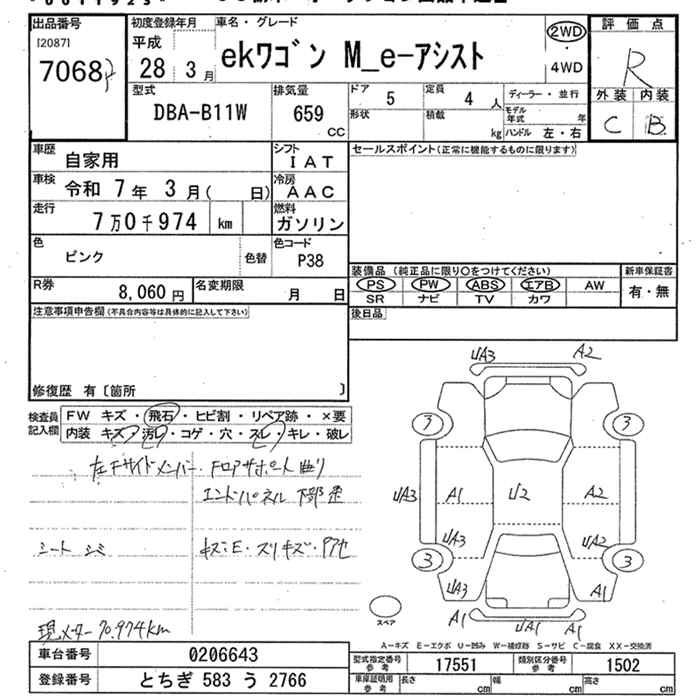 出品番号
[2087]
7068
初度登録年月
平成
28 3月
車名・グレード
ekワゴン M_e-アシスト
2WD
・
4WD
評価点
R
外装 内装
C B
型式
DBA-B11W
排気量
659
CC
ドア
5
定員
4 人
形状
積載
kg
ディーラー・並行
モデル年式 年
ハンドル 左・右
車歴
自家用
シフト
IAT
車検
令和 7年 3月( 日)
冷房
AAC
走行
7万0千974 km
燃料
ガソリン
色
ピンク
色替
色コード
P38
R券
8,060 円
名変期限
月 日
セールスポイント(正常に機能するものに限ります)
装備品 (純正品に限り○をつけてください)
新車保証書
PS PW ABS エアB AW
SR ナビ TV カワ
有・無
後日品
注意事項申告欄(不具合内容等は具体的に記入して下さい)
修復歴 有〔箇所 〕
検査員記入欄
FW キズ・飛石・ヒビ割・リペア跡・×要
内装 キズ・汚れ・コゲ・穴・スレ・キレ・破レ
左Fサイドメンバー・Fロアサポート曲り
エンドパネル 下部歪
シート シミ
キズ・E・スリキズ・
現メーター 70.974km
UA3 A2
3 3
UA3 A1 U2 A2
UA3 UA2
3 3
UA3 A1
A1 UA1 A1
スペア
A-キズ E-エクボ U-凹み W-補修跡 S-サビ C-腐食 XX-交換済
車台番号
0206643
登録番号
とちぎ 583 う 2766
型式指定番号
参考
17551
類別区分番号
参考
1502
車庫証明用
参考
長さ cm
幅 cm
高さ cm